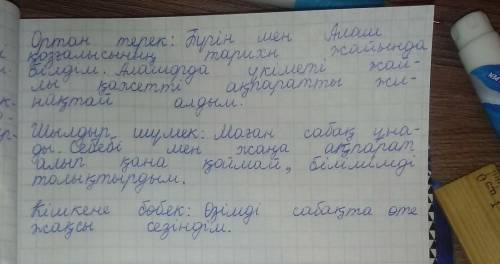 Ортан терек: Бүгін мен Алаш
қозғалысының тарихи жайында
білдім. Алашорда үкіметі жай-
лы қажетті ақпаратты жи-
нақтай алдым.
Шылдыр шүмек: Маған сабақ ұна-
ды. Себебі мен жаңа ақпарат
алып қана қоймай, білімімді
толықтырдым.
Кішкене бөбек: Өзімді сабақта өте
жақсы сезіндім.